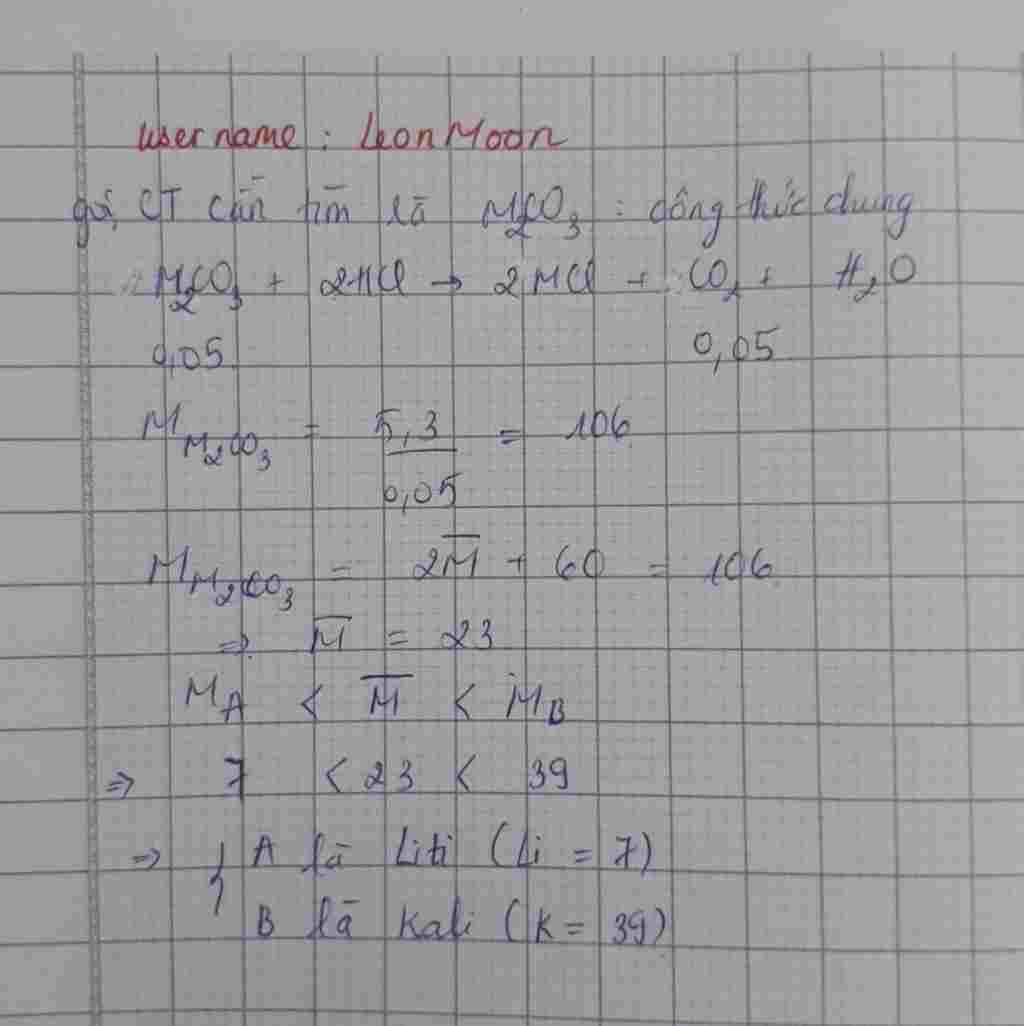 username : LeonMoon
gọi CT cần tìm là M2CO3 : công thức chung
M2CO3 + 2HCl → 2MCl + CO2 + H2O
0,05 0,05
M M2CO3 = 5,3 / 0,05 = 106
M M2CO3 = 2M̅ + 60 = 106
⇒ M̅ = 23
MA < M̅ < MB
⇒ 7 < 23 < 39
⇒ { A là Liti (Li = 7)
B là Kali (K = 39)